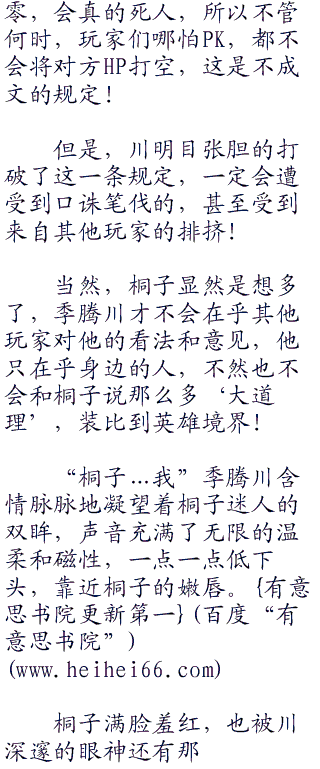 零，会真的死人，所以不管
何时，玩家们哪怕PK，都不
会将对方HP打空，这是不成
文的规定！
但是，川明目张胆的打
破了这一条规定，一定会遭
受到口诛笔伐的，甚至受到
来自其他玩家的排挤！
当然，桐子显然是想多
了，季腾川才不会在乎其他
玩家对他的看法和意见，他
只在乎身边的人，不然也不
会和桐子说那么多‘大道
理’，装比到英雄境界！
“桐子…我”季腾川含
情脉脉地凝望着桐子迷人的
双眸，声音充满了无限的温
柔和磁性，一点一点低下
头，靠近桐子的嫩唇。{有意
思书院更新第一}(百度“有
意思书院”)
(www.heihei66.com)
桐子满脸羞红，也被川
深邃的眼神还有那